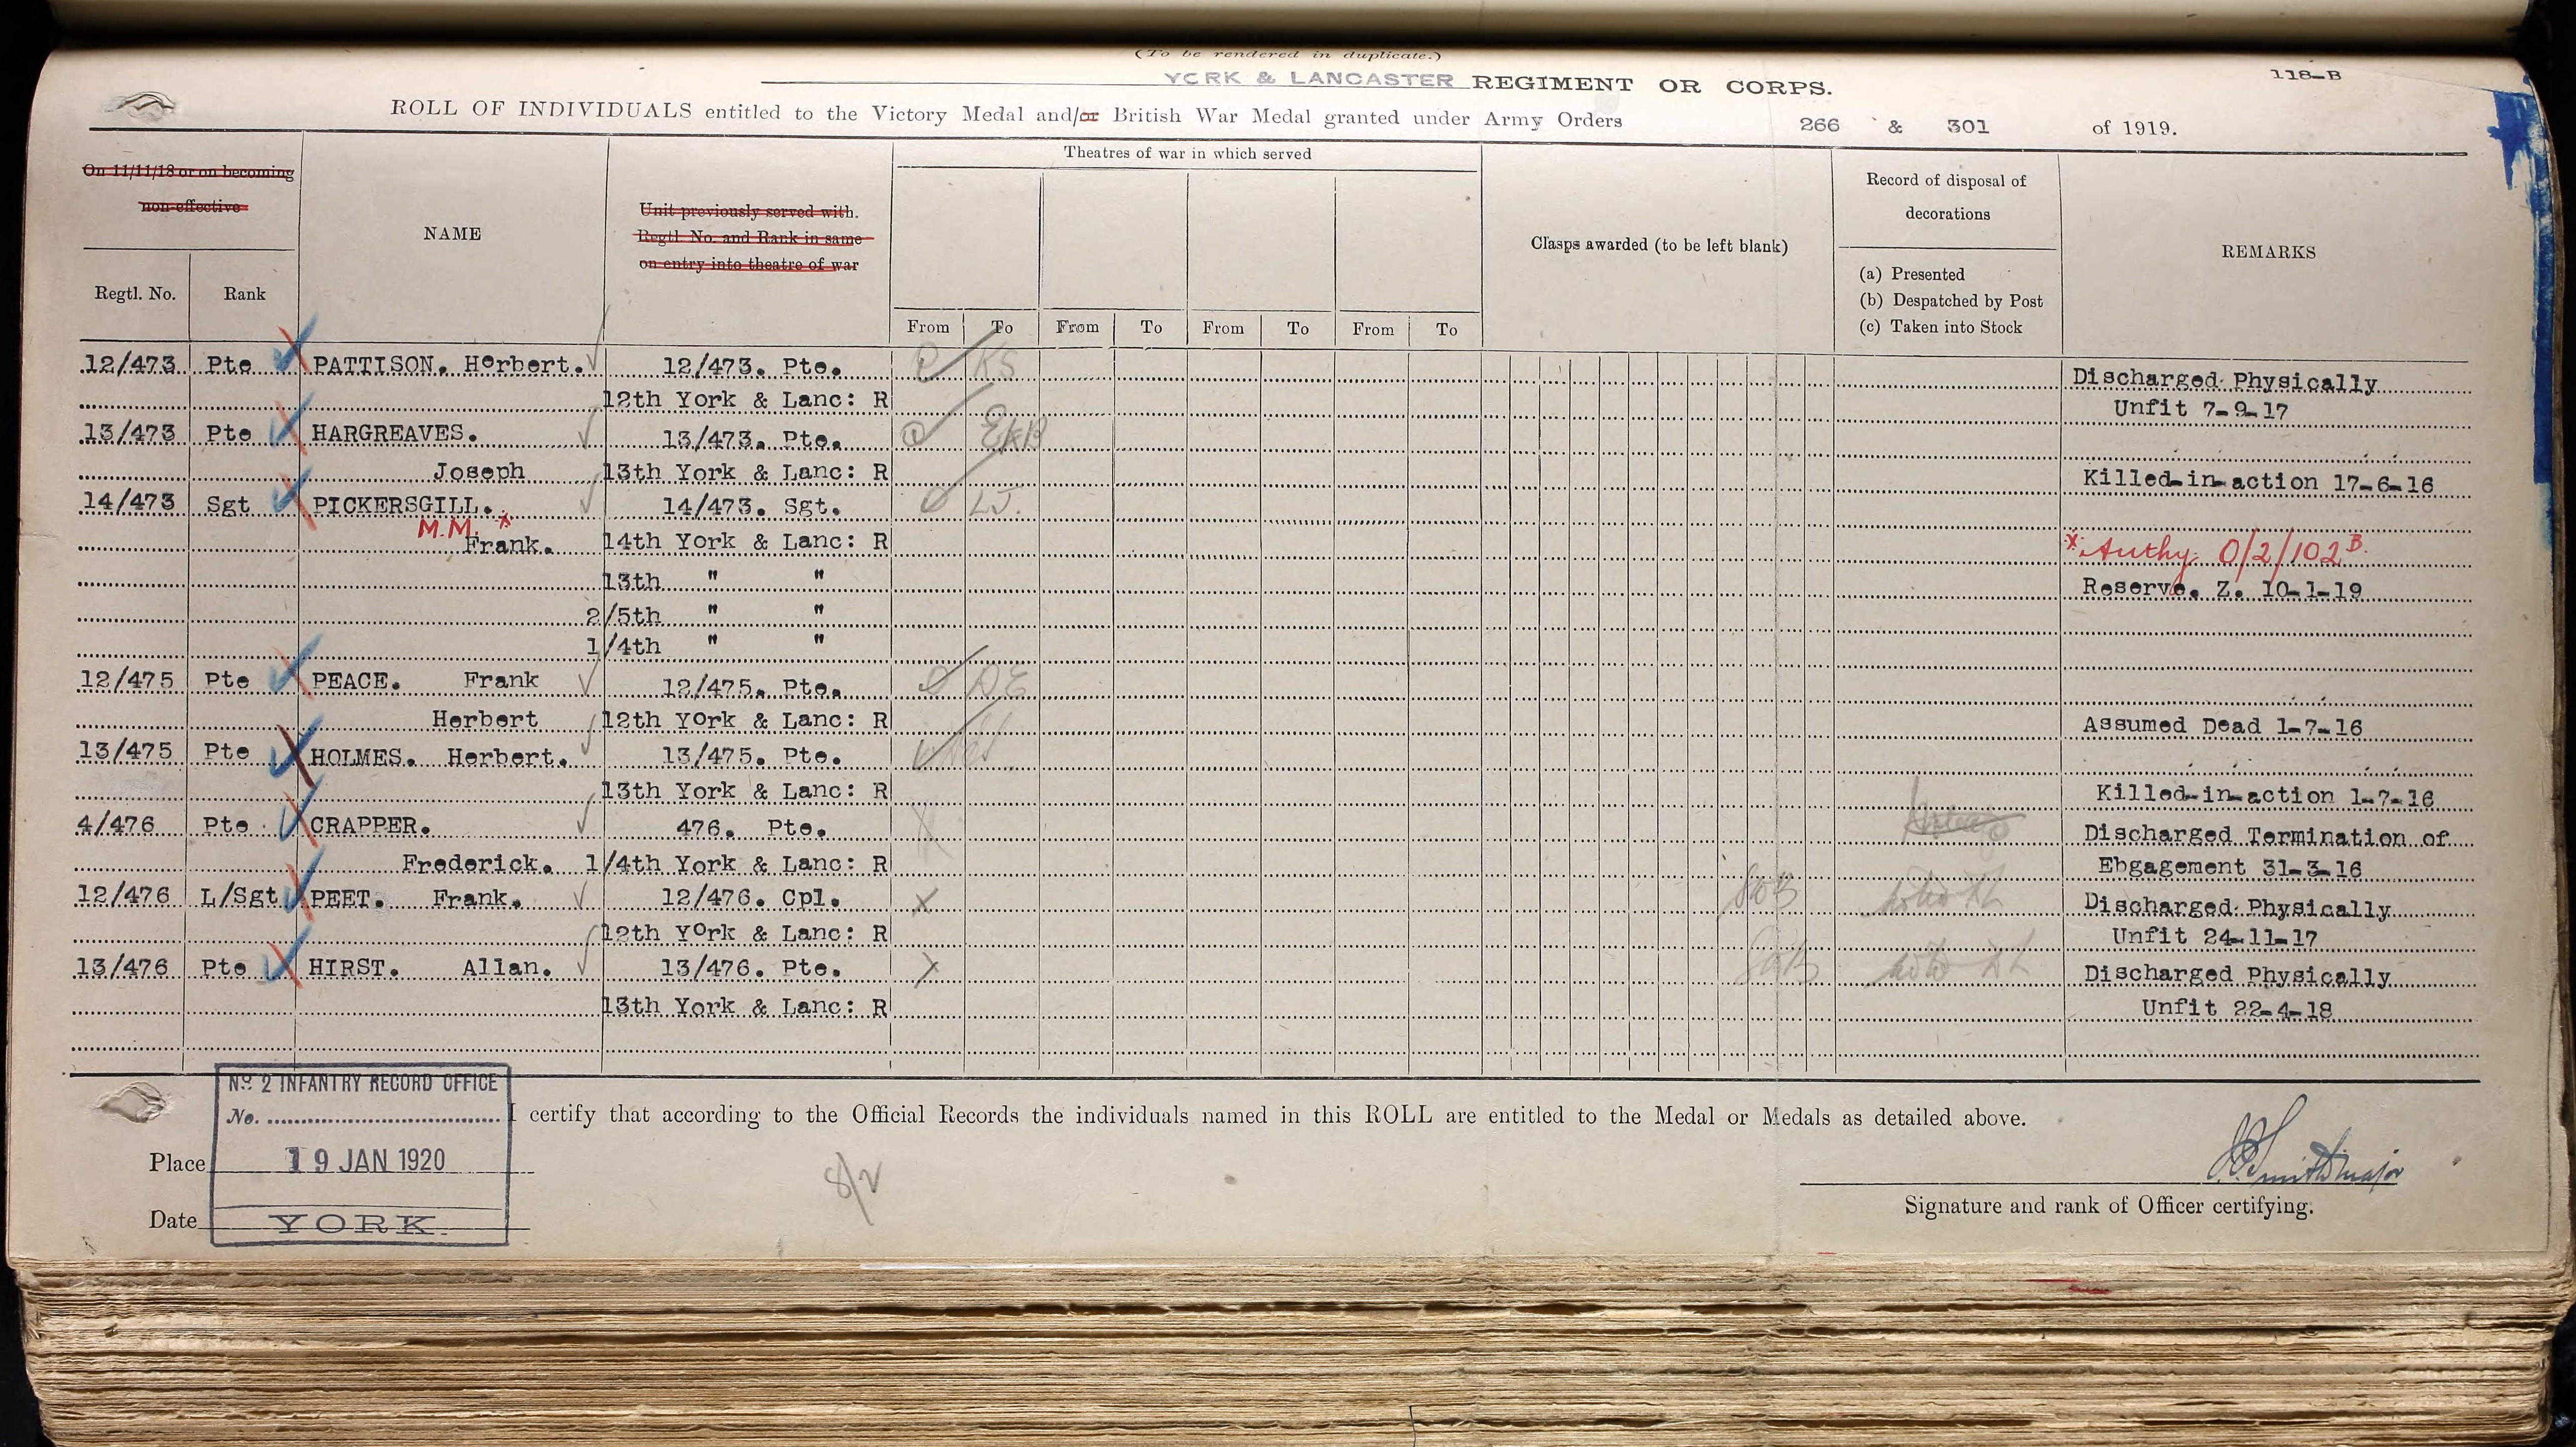 (To be rendered in duplicate.)
YORK & LANCASTER REGIMENT OR CORPS.
118-B
ROLL OF INDIVIDUALS entitled to the Victory Medal and/or British War Medal granted under Army Orders 266 & 301 of 1919.
On 11/11/18 or on becoming
non-effective
Regtl. No. Rank
NAME
Unit previously served with.
Regtl. No. and Rank in same
on entry into theatre of war
Theatres of war in which served
From To From To From To From To
Clasps awarded (to be left blank)
Record of disposal of
decorations
(a) Presented
(b) Despatched by Post
(c) Taken into Stock
REMARKS
12/473 Pte PATTISON. Herbert. 12/473. Pte. KS Discharged Physically
12th York & Lanc: R Unfit 7-9-17
13/473 Pte HARGREAVES. 13/473. Pte. EKB
Joseph 13th York & Lanc: R Killed-in-action 17-6-16
14/473 Sgt PICKERSGILL. 14/473. Sgt. LJ.
M.M. *
Frank. 14th York & Lanc: R * Authy. 0/2/102 B.
13th " " Reserve. Z. 10-1-19
2/5th " "
1/4th " "
12/475 Pte PEACE. Frank 12/475. Pte. DE
Herbert 12th York & Lanc: R Assumed Dead 1-7-16
13/475 Pte HOLMES. Herbert. 13/475. Pte.
13th York & Lanc: R Killed-in-action 1-7-16
4/476 Pte CRAPPER. 476. Pte. Discharged Termination of
Frederick. 1/4th York & Lanc: R Ebgagement 31-3-16
12/476 L/Sgt PEET. Frank. 12/476. Cpl. X Discharged Physically
12th York & Lanc: R Unfit 24-11-17
13/476 Pte HIRST. Allan. 13/476. Pte. X Discharged Physically
13th York & Lanc: R Unfit 22-4-18
No. 2 INFANTRY RECORD OFFICE
No.
I certify that according to the Official Records the individuals named in this ROLL are entitled to the Medal or Medals as detailed above.
Place 19 JAN 1920
8/2
Smith Major
Signature and rank of Officer certifying.
Date YORK